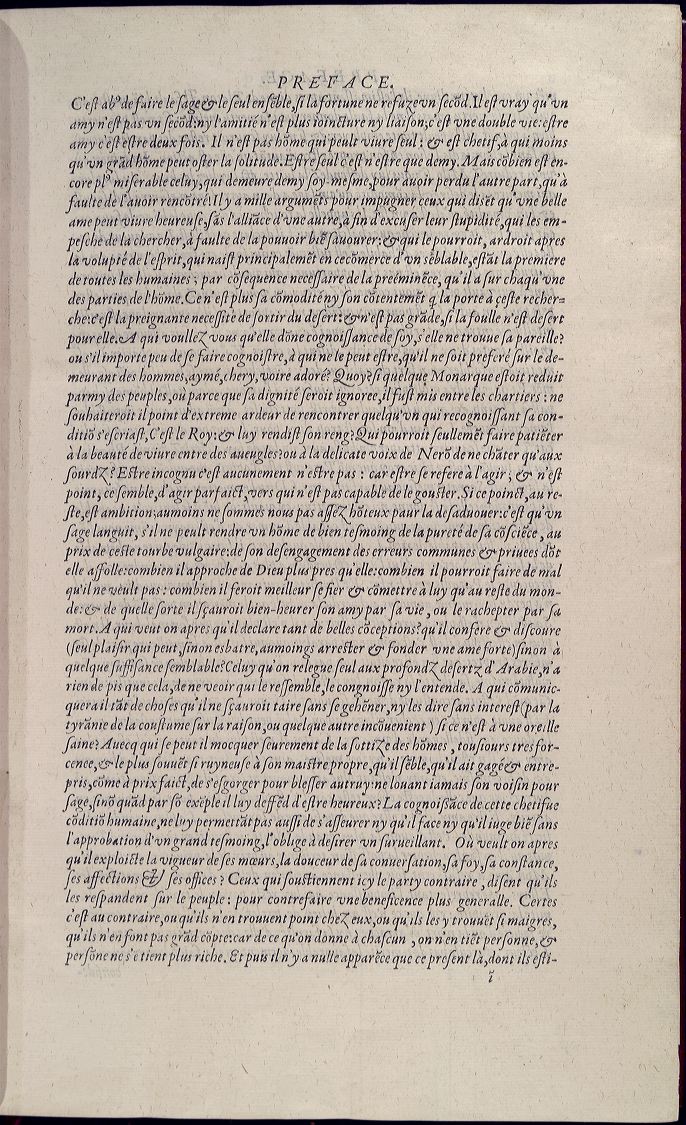 PREFACE.
C'est abꝰ de faire le sage & le seul ensẽble, si la fortune ne refuze vn secõd. Il est vray qu'vn
amy n'est pas vn secõd: ny l'amitié n'est plus ioincture ny liaison; c'est vne double vie: estre
amy c'est estre deux fois. Il n'est pas hõme qui peult viure seul: & est chetif, à qui moins
qu'vn grãd hõme peut oster la solitude. Estre seul c'est n'estre que demy. Mais cõbien est en-
core plꝰ miserable celuy, qui demeure demy soy-mesme, pour auoir perdu l'autre part, qu'à
faulte de l'auoir rencõtré! Il y a mille argumẽts pour impugner ceux qui disẽt qu'vne belle
ame peut viure heureuse, sãs l'alliãce d'vne autre, à fin d'excuser leur stupidité, qui les em-
pesche de la chercher, à faulte de la pouuoir biẽ sauourer: & qui le pourroit, ardroit apres
la volupté de l'esprit, qui naist principalemẽt en ce cõmerce d'vn sẽblable, estãt la premiere
de toutes les humaines; par cõsequence necessaire de la preéminẽce, qu'il a sur chaqu'vne
des parties de l'hõme. Ce n'est plus sa cõmodité ny son cõtentemẽt q̃ la porte à ceste recher-
che: c'est la preignante necessité de sortir du desert: & n'est pas grãde, si la foulle n'est desert
pour elle. A qui voullez vous qu'elle dõne cognoissance de soy, s'elle ne trouue sa pareille?
ou s'il importe peu de se faire cognoistre, à qui ne le peut estre, qu'il ne soit preferé sur le de-
meurant des hommes, aymé, chery, voire adoré? Quoy? si quelque Monarque estoit reduit
parmy des peuples, où parce que sa dignité seroit ignoree, il fust mis entre les chartiers: ne
souhaiteroit il point d'extreme ardeur de rencontrer quelqu'vn qui recognoissant sa con-
ditiõ s'escriast, C'est le Roy: & luy rendist son reng? Qui pourroit seullemẽt faire patiẽter
à la beauté de viure entre des aueugles? ou à la delicate voix de Nerõ de ne chãter qu'aux
sourdz? Estre incognu c'est aucunement n'estre pas: car estre se refere à l'agir; & n'est
point, ce semble, d'agir parfaict, vers qui n'est pas capable de le gouster. Si ce poinct, au re-
ste, est ambition; aumoins ne sommes nous pas assez hõteux paur la desaduouer: c'est qu'vn
sage languit, s'il ne peult rendre vn hõme de bien tesmoing de la pureté de sa cõsciẽce, au
prix de ceste tourbe vulgaire: de son desengagement des erreurs communes & priuees dõt
elle affolle: combien il approche de Dieu plus pres qu'elle: combien il pourroit faire de mal
qu'il ne veult pas: combien il feroit meilleur se fier & cõmettre à luy qu'au reste du mon-
de: & de quelle sorte il sçauroit bien-heurer son amy par sa vie, ou le rachepter par sa
mort. A qui veut on apres qu'il declare tant de belles cõceptions? qu'il confere & discoure
(seul plaisir qui peut, sinon esbatre, aumoings arrester & fonder vne ame forte) sinon à
quelque suffisance semblable? Celuy qu'on relegue seul aux profondz desertz d'Arabie, n'a
rien de pis que cela, de ne veoir qui le ressemble, le congnoisse ny l'entende. A qui cõmunic-
quera il tãt de choses qu'il ne sçauroit taire sans se gehẽner, ny les dire sans interest (par la
tyrãnie de la coustume sur la raison, ou quelque autre incõuenient) si ce n'est à vne oreille
saine? Auecq qui se peut il mocquer seurement de la sottize des hõmes, tousiours tres for-
cenee, & le plus souuẽt si ruyneuse à son maistre propre, qu'il sẽble, qu'il ait gagé & entre-
pris, cõme à prix faict, de s'esgorger pour blesser autruy: ne louant iamais son voisin pour
sage, sinõ quãd par sõ exẽple il luy deffẽd d'estre heureux? La cognoissãce de cette chetifue
cõditiõ humaine, ne luy permettãt pas aussi de s'asseurer ny qu'il face ny qu'il iuge biẽ sans
l'approbation d'vn grand tesmoing, l'oblige à desirer vn surueillant. Où veult on apres
qu'il exploicte la vigueur de ses mœurs, la douceur de sa conuersation, sa foy, sa constance,
ses affections & ses offices? Ceux qui soustiennent icy le party contraire, disent qu'ils
les respandent sur le peuple: pour contrefaire vne beneficence plus generalle. Certes
c'est au contraire, ou qu'ils n'en trouuent point chez eux, ou qu'ils les y trouuẽt si maigres,
qu'ils n'en font pas grãd cõpte: car de ce qu'on donne à chascun, on n'en tiẽt personne, &
persõne ne s'e tient plus riche. Et puis il n'y a nulle apparẽce que ce present là, dont ils esti-
ĩ